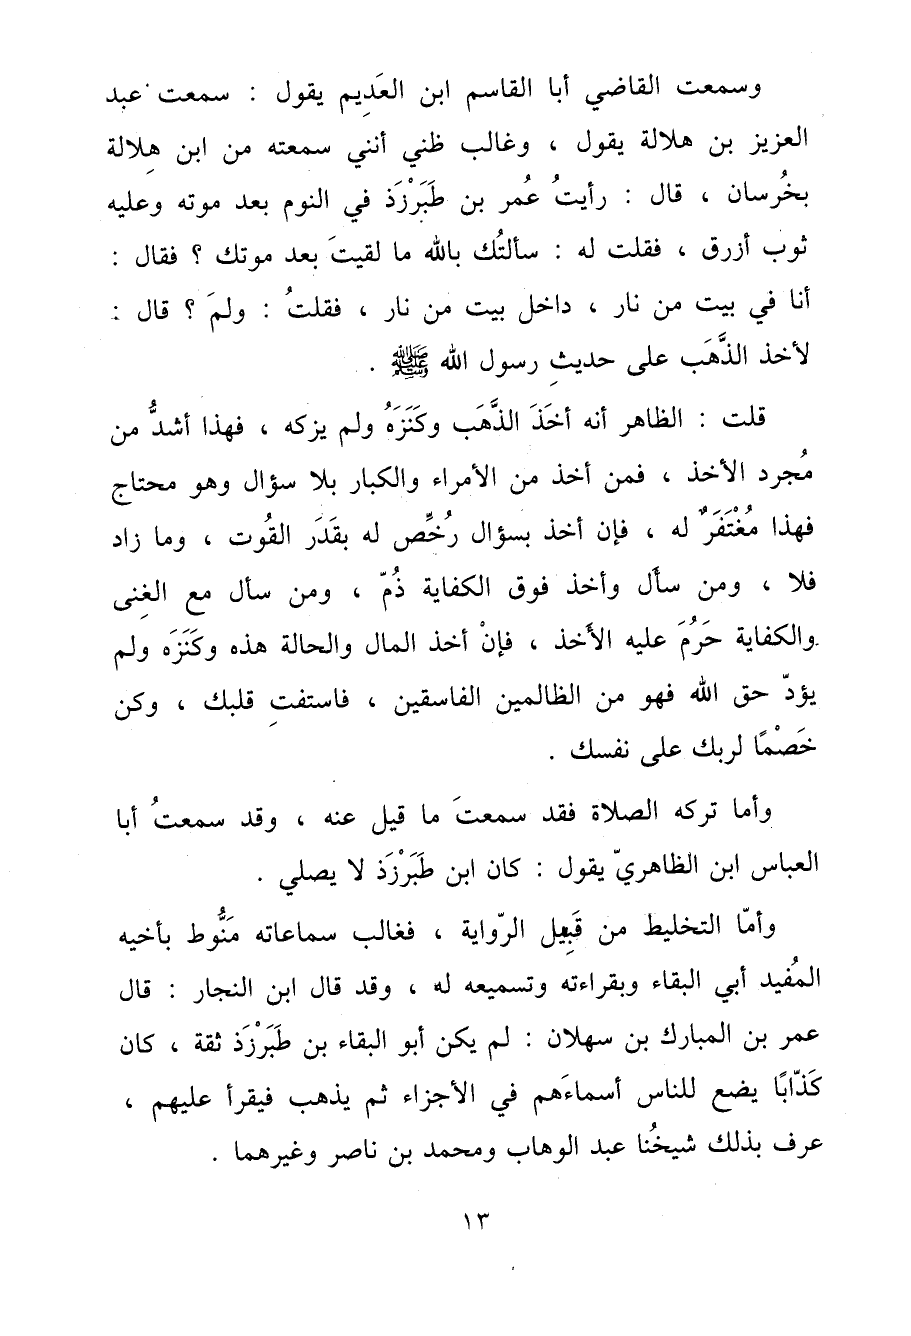 وسمعت القاضي أبا القاسم ابن العَدِيم يقول : سمعت عبد
العزيز بن هلالة يقول ، وغالب ظني أنني سمعته من ابن هِلالة
بخُرسان ، قال : رأيتُ عُمر بن طَبَرْزَذ في النوم بعد موته وعليه
ثوب أزرق ، فقلت له : سألتُك بالله ما لقيتَ بعد موتك ؟ فقال :
أنا في بيت من نار ، داخل بيت من نار ، فقلتُ : ولمَ ؟ قال :
لأخذ الذَّهَب على حديثِ رسول الله ﷺ .
قلت : الظاهر أنه أخَذَ الذَّهَب وكَنَزَهُ ولم يزكه ، فهذا أشدُّ من
مُجرد الأخذ ، فمن أخذ من الأمراء والكبار بلا سؤال وهو محتاج
فهذا مُغْتَفَرٌ له ، فإن أخذ بسؤال رُخِّص له بقَدَر القُوت ، وما زاد
فلا ، ومن سأَل وأخذ فوق الكفاية ذُمّ ، ومن سأل مع الغِنى
والكفاية حَرُمَ عليه الأَخذ ، فإنْ أخذ المال والحالة هذه وكَنَزَه ولم
يؤدّ حق الله فهو من الظالمين الفاسقين ، فاستفتِ قلبك ، وكن
خَصْمًا لربك على نفسك .
وأما تركه الصلاة فقد سمعتَ ما قيل عنه ، وقد سمعتُ أبا
العباس ابن الظاهريّ يقول : كان ابن طَبَرْزَذ لا يصلي .
وأمّا التخليط من قَبِيل الرّواية ، فغالب سماعاته مَنُّوط بأخيه
المُفيد أبي البقاء وبقراءته وتسميعه له ، وقد قال ابن النجار : قال
عمر بن المبارك بن سهلان : لم يكن أبو البقاء بن طَبَرْزَذ ثقة ، كان
كَذّابًا يضع للناس أسماءَهم في الأجزاء ثم يذهب فيقرأ عليهم ،
عرف بذلك شيخُنا عبد الوهاب ومحمد بن ناصر وغيرهما .
١٣